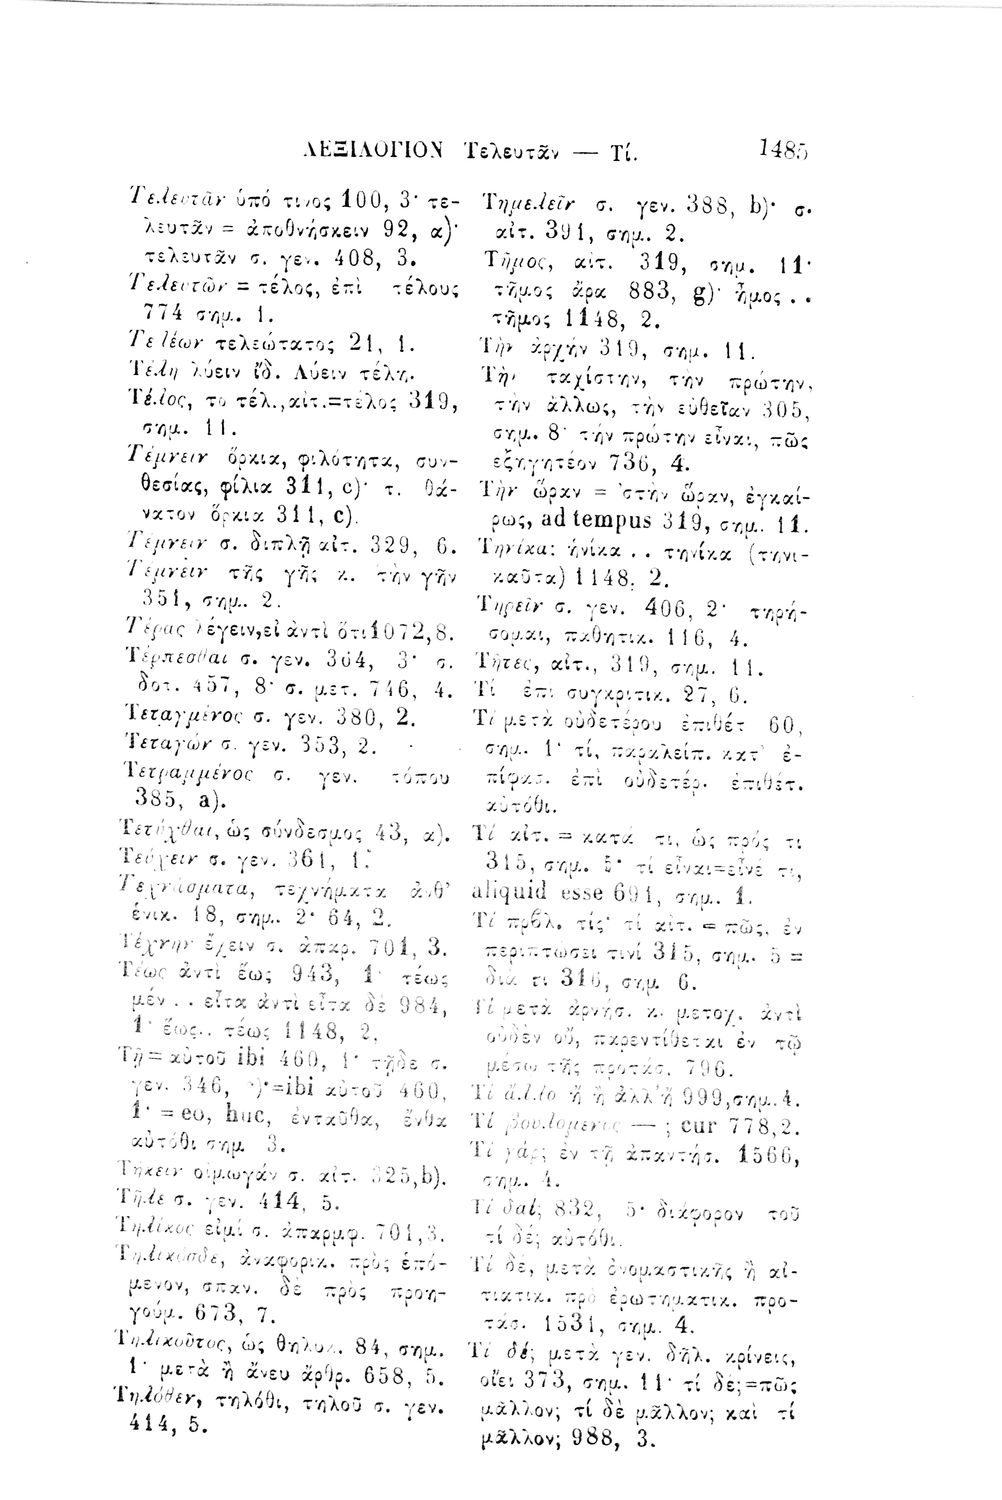 ΛΕΞΙΛΟΓΙΟΝ Τελευτᾶν — Τί. 1485
Τελευτᾶν ὑπό τινος 100, 3· τε-
λευτᾶν = ἀποθνήσκειν 92, α)·
τελευτᾶν σ. γεν. 408, 3.
Τελευτῶν = τέλος, ἐπὶ τέλους
774 σημ. 1.
Τελέων τελεώτατος 21, 1.
Τέλη λύειν ἴδ. Λύειν τέλη.
Τέλος, το τέλ., αἰτ.=τέλος 319,
σημ. 11.
Τέμνειν ὅρκια, φιλότητα, συν-
θεσίας, φίλια 311, c)· τ. θά-
νατον ὅρκια 311, c).
Τέμνειν σ. διπλῇ αἰτ. 329, 6.
Τέμνειν τῆς γῆς κ. τὴν γῆν
351, σημ. 2.
Τέρας λέγειν, εἰ ἀντὶ ὅτι 1072, 8.
Τέρπεσθαι σ. γεν. 364, 3· σ.
δοτ. 457, 8· σ. μετ. 746, 4.
Τεταγμένος σ. γεν. 380, 2.
Τεταγών σ. γεν. 353, 2.
Τετραμμένος σ. γεν. τόπου
385, a).
Τετύχθαι, ὡς σύνδεσμος 43, α).
Τεύχειν σ. γεν. 361, 1.
Τεχνάσματα, τεχνήματα ἀνθ'
ἑνικ. 18, σημ. 2· 64, 2.
Τέχνην ἔχειν σ. ἀπαρ. 701, 3.
Τέως ἀντὶ ἕως 943, 1· τέως
μέν . . εἶτα ἀντὶ εἶτα δὲ 984,
1· ἕως.. τέως 1148, 2.
Τῇ = αὐτοῦ ibi 460, 1· τῇδε σ.
γεν. 346, )·=ibi αὐτοῦ 460,
1· = eo, huc, ἐνταῦθα, ἔνθα
αὐτόθι σημ 3.
Τήκειν οἰμωγάν σ. αἰτ. 325, b).
Τῆλε σ. γεν. 414, 5.
Τηλίκος εἰμί σ. ἀπαρμφ. 701, 3.
Τηλικόσδε, ἀναφορικ. πρὸς ἑπό-
μενον, σπαν. δὲ πρὸς προη-
γούμ. 673, 7.
Τηλικοῦτος, ὡς θηλυκ. 84, σημ.
1· μετὰ ἢ ἄνευ ἄρθρ. 658, 5.
Τηλόθεν, τηλόθι, τηλοῦ σ. γεν.
414, 5.
Τημελεῖν σ. γεν. 388, b)· σ.
αἰτ. 391, σημ. 2.
Τῆμος, αἰτ. 319, σημ. 11·
τῆμος ἄρα 883, g)· ἦμος . .
τῆμος 1148, 2.
Τὴν ἀρχήν 319, σημ. 11.
Τὴν ταχίστην, τὴν πρώτην,
τὴν ἄλλως, τὴν εὐθεῖαν 305,
σημ. 8· τὴν πρώτην εἶναι, πῶς
ἐξηγητέον 736, 4.
Τὴν ὥραν = 'στὴν ὥραν, ἐγκαί-
ρως, ad tempus 319, σημ. 11.
Τηνίκα: ἡνίκα . . τηνίκα (τηνι-
καῦτα) 1148, 2.
Τηρεῖν σ. γεν. 406, 2· τηρή-
σομαι, παθητικ. 116, 4.
Τῆτες, αἰτ., 319, σημ. 11.
Τί ἐπὶ συγκριτικ. 27, 6.
Τί μετὰ οὐδετέρου ἐπιθέτ 60,
σημ. 1· τί, παραλείπ. κατ' ἐ-
πίφασ. ἐπὶ οὐδετέρ. ἐπιθέτ.
αὐτόθι.
Τί αἰτ. = κατά τι, ὡς πρός τι
315, σημ. 5· τί εἶναι=εἶνέ τι,
aliquid esse 691, σημ. 1.
Τί πρβλ. τίς· τί αἰτ. = πῶς, ἐν
περιπτώσει τινί 315, σημ. 5 =
διὰ τι 316, σημ 6.
Τί μετὰ ἀρνήσ. κ. μετοχ. ἀντὶ
οὐδὲν οὔ, παρεντίθεται ἐν τῷ
μέσῳ τῆς προτάσ. 796.
Τί ἄλλο ἢ ἢ ἀλλ' ἢ 999, σημ. 4.
Τί βουλόμενος — ; cur 778, 2.
Τί γάρ; ἐν τῇ ἀπαντήσ. 1566,
σημ. 4.
Τί δαί; 832, 5· διάφορον τοῦ
τί δέ; αὐτόθι.
Τί δέ, μετὰ ὀνομαστικῆς ἢ αἰ-
τιατικ. πρὸ ἐρωτηματικ. προ-
τάσ. 1531, σημ. 4.
Τί δέ; μετὰ γεν. δηλ. κρίνεις,
οἴει 373, σημ. 11· τί δέ;=πῶς
μᾶλλον; τί δὲ μᾶλλον; καὶ τί
μᾶλλον; 988, 3.